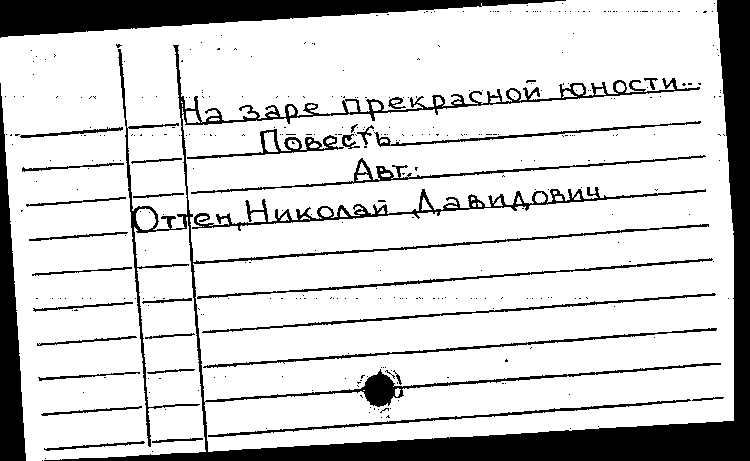 На заре прекрасной юности...
Повесть.
Авт.:
Оттен, Николай Давидович.